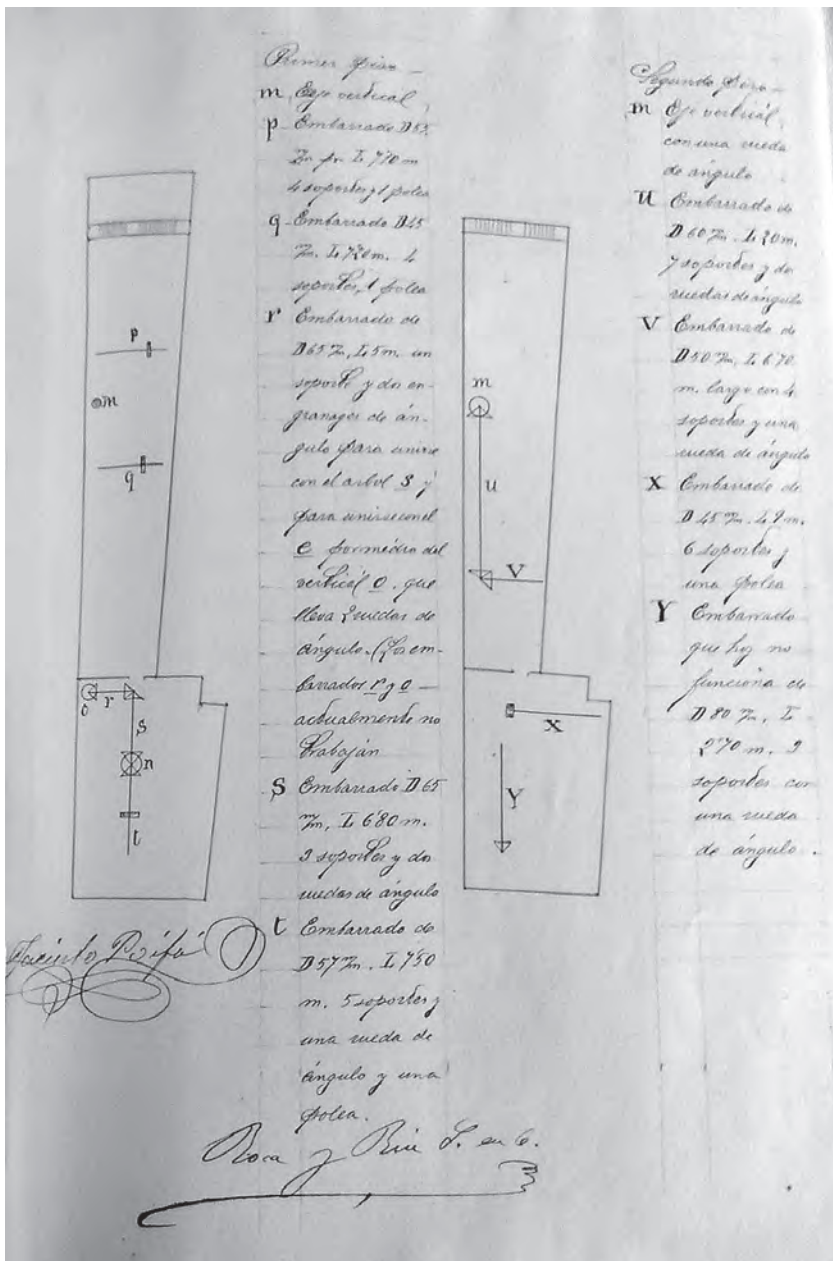 Primer piso —
m, Eje vertical
p - Embarrado D 55
m/m L 7'70 m
4 soportes y 1 polea
q - Embarrado D 45
m/m. L 7'20 m. 4
soportes, 1 polea
r Embarrado de
D 65 m/m, L 5 m. un
soporte y dos en-
granages de án-
gulo para unirse
con el arbol s y
para unirse con el
e por medio del
vertical o. que
lleva 2 ruedas de
ángulo. (Los em-
barrados r y o —
actualmente no
trabajan
S Embarrado D 65
m/m, L 6'80 m.
3 soportes y dos
ruedas de ángulo
t Embarrado de
D 57 m/m. L 7'50
m. 5 soportes y
una rueda de
ángulo y una
polea.
Segundo piso —
m Eje vertical
con una rueda
de ángulo
U Embarrado de
D 60 m/m. L 20 m.
7 soportes y dos
ruedas de ángulo
V Embarrado de
D 50 m/m, L 6'70
m. largo con 4
soportes y una
rueda de ángulo
X Embarrado de
D 45 m/m. L 9 m.
6 soportes y
una polea
Y Embarrado
que hoy no
funciona de
D 80 m/m, L
2'70 m. 3
soportes con
una rueda
de ángulo.
p
m
q
o
r
s
n
t
m
u
V
X
Y
Jacinto
Roca y S. en C.